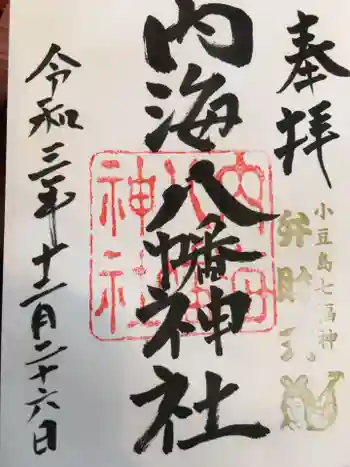 奉拝
小豆島七福神
弁財天
内海八幡神社
令和三年十二月二十六日